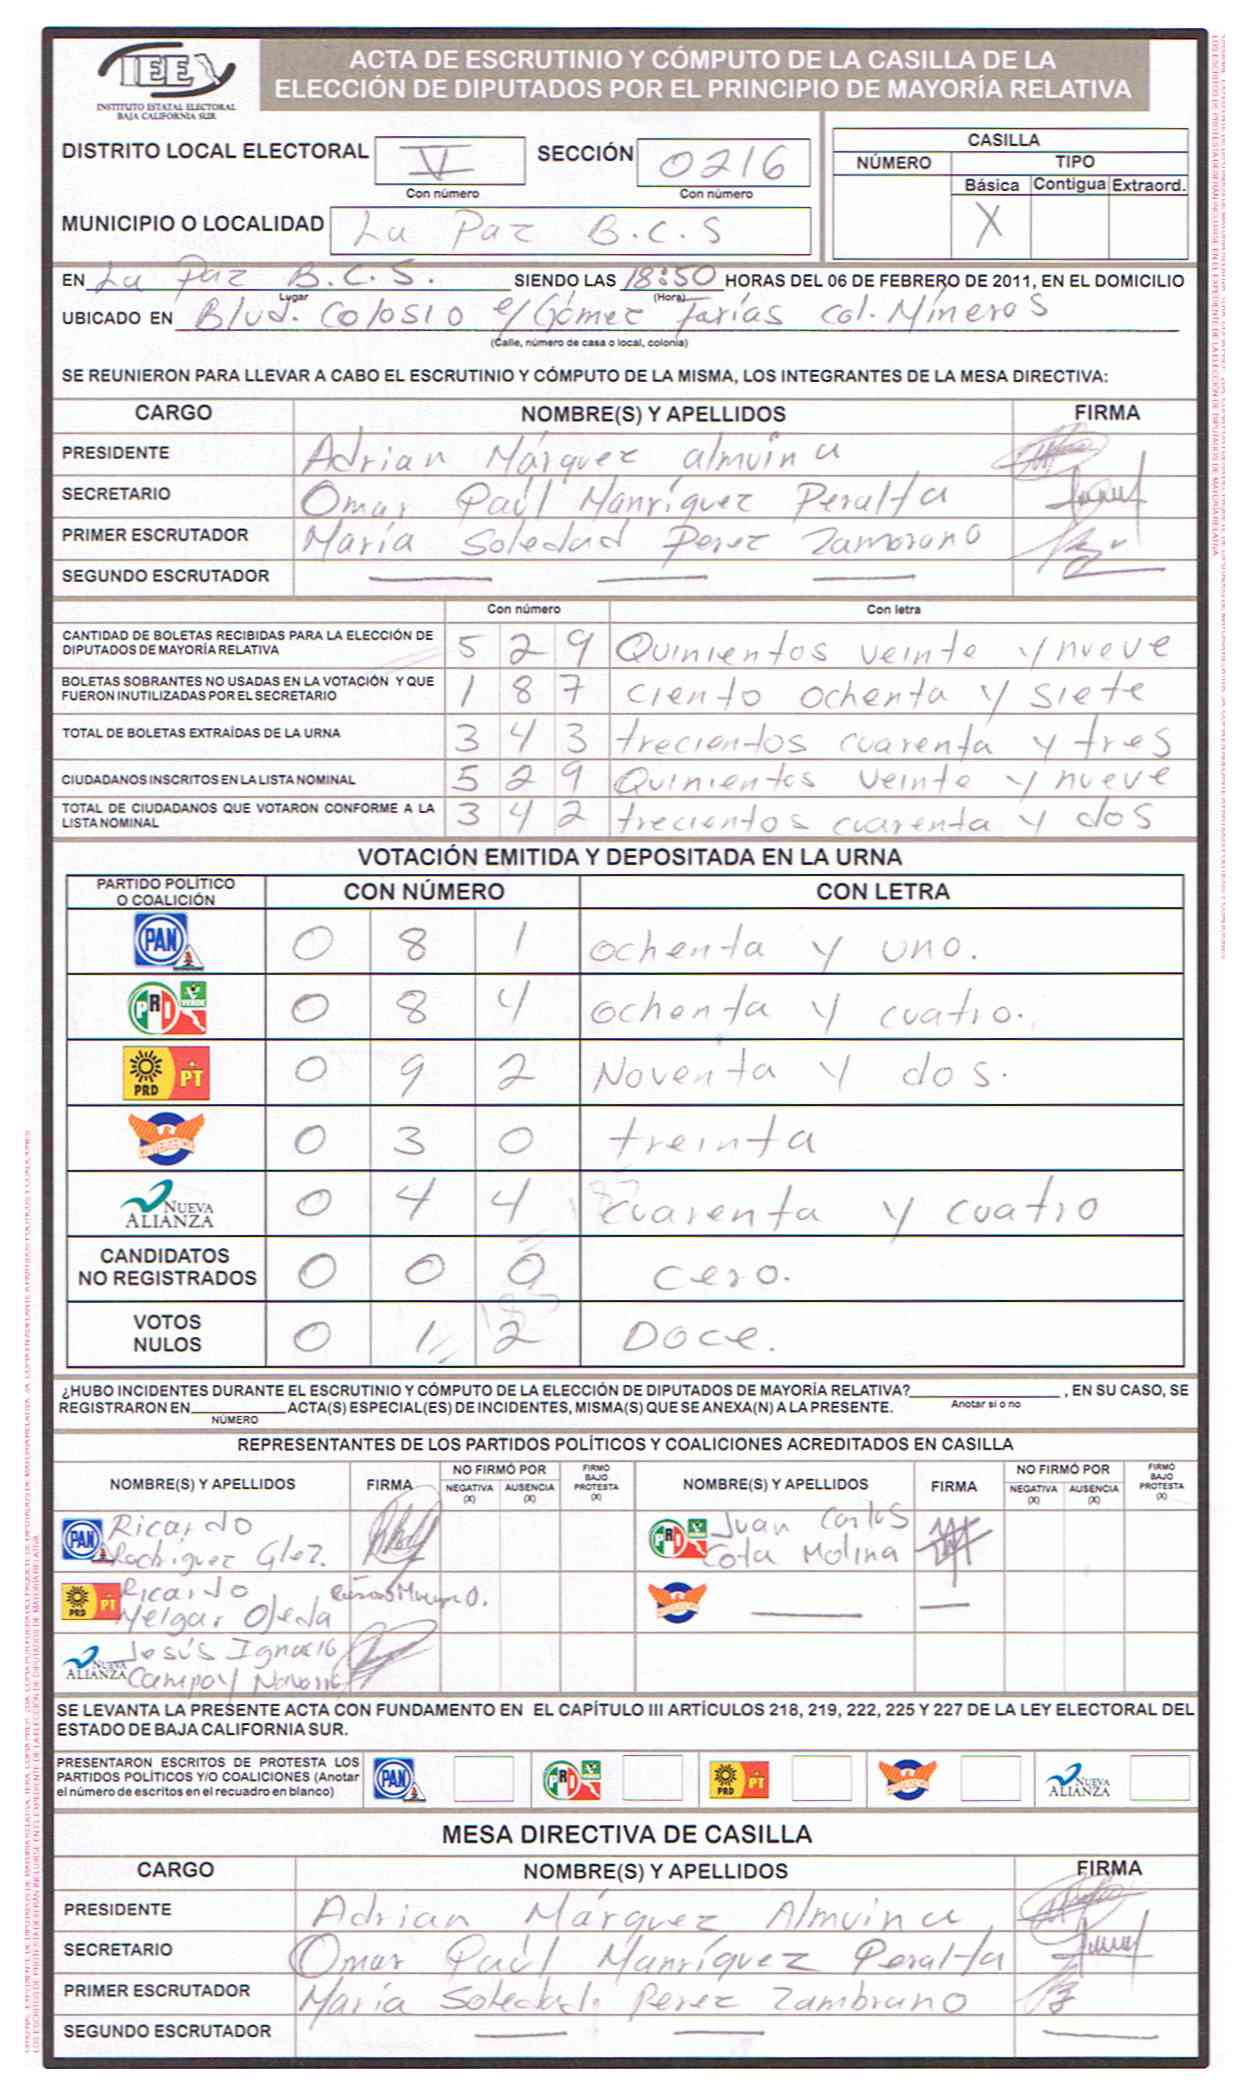 IEE
INSTITUTO ESTATAL ELECTORAL
BAJA CALIFORNIA SUR
ACTA DE ESCRUTINIO Y CÓMPUTO DE LA CASILLA DE LA
ELECCIÓN DE DIPUTADOS POR EL PRINCIPIO DE MAYORÍA RELATIVA
DISTRITO LOCAL ELECTORAL V SECCIÓN 0216
Con número Con número
MUNICIPIO O LOCALIDAD La Paz B.C.S
CASILLA
NÚMERO TIPO
Básica Contigua Extraord.
X
EN La Paz B.C.S. SIENDO LAS 18:50 HORAS DEL 06 DE FEBRERO DE 2011, EN EL DOMICILIO
Lugar (Hora)
UBICADO EN Blvd. Colosio e/Gómez Farías col. Mineros
(Calle, número de casa o local, colonia)
SE REUNIERON PARA LLEVAR A CABO EL ESCRUTINIO Y CÓMPUTO DE LA MISMA, LOS INTEGRANTES DE LA MESA DIRECTIVA:
CARGO NOMBRE(S) Y APELLIDOS FIRMA
PRESIDENTE Adrian Márquez almuina
SECRETARIO Omar Paúl Manríquez Peralta
PRIMER ESCRUTADOR María Soledad Perez Zambrano
SEGUNDO ESCRUTADOR
Con número Con letra
CANTIDAD DE BOLETAS RECIBIDAS PARA LA ELECCIÓN DE
DIPUTADOS DE MAYORÍA RELATIVA 5 2 9 Quinientos veinte y nueve
BOLETAS SOBRANTES NO USADAS EN LA VOTACIÓN Y QUE
FUERON INUTILIZADAS POR EL SECRETARIO 1 8 7 ciento ochenta y siete
TOTAL DE BOLETAS EXTRAÍDAS DE LA URNA 3 4 3 trecientos cuarenta y tres
CIUDADANOS INSCRITOS EN LA LISTA NOMINAL 5 2 9 Quinientos veinte y nueve
TOTAL DE CIUDADANOS QUE VOTARON CONFORME A LA
LISTA NOMINAL 3 4 2 trecientos cuarenta y dos
VOTACIÓN EMITIDA Y DEPOSITADA EN LA URNA
PARTIDO POLÍTICO
O COALICIÓN CON NÚMERO CON LETRA
PAN 0 8 1 ochenta y uno.
PRI VERDE 0 8 4 ochenta y cuatro.
PRD PT 0 9 2 Noventa y dos.
CONVERGENCIA 0 3 0 treinta
NUEVA ALIANZA 0 4 4 cuarenta y cuatro
CANDIDATOS
NO REGISTRADOS 0 0 0 cero.
VOTOS
NULOS 0 1 2 Doce.
¿HUBO INCIDENTES DURANTE EL ESCRUTINIO Y CÓMPUTO DE LA ELECCIÓN DE DIPUTADOS DE MAYORÍA RELATIVA? , EN SU CASO, SE
Anotar si o no
REGISTRARON EN ACTA(S) ESPECIAL(ES) DE INCIDENTES, MISMA(S) QUE SE ANEXA(N) A LA PRESENTE.
NÚMERO
REPRESENTANTES DE LOS PARTIDOS POLÍTICOS Y COALICIONES ACREDITADOS EN CASILLA
NOMBRE(S) Y APELLIDOS FIRMA NO FIRMÓ POR NEGATIVA (X) AUSENCIA (X) FIRMÓ BAJO PROTESTA (X) NOMBRE(S) Y APELLIDOS FIRMA NO FIRMÓ POR NEGATIVA (X) AUSENCIA (X) FIRMÓ BAJO PROTESTA (X)
PAN Ricardo
Rodríguez Glez.
PRI VERDE Juan Carlos
Cota Molina
PRD PT Ricardo
Melgar Ojeda
NUEVA ALIANZA Jesús Ignacio
Campoy
SE LEVANTA LA PRESENTE ACTA CON FUNDAMENTO EN EL CAPÍTULO III ARTÍCULOS 218, 219, 222, 225 Y 227 DE LA LEY ELECTORAL DEL
ESTADO DE BAJA CALIFORNIA SUR.
PRESENTARON ESCRITOS DE PROTESTA LOS
PARTIDOS POLÍTICOS Y/O COALICIONES (Anotar
el número de escritos en el recuadro en blanco)
PAN PRI VERDE PRD PT NUEVA ALIANZA
MESA DIRECTIVA DE CASILLA
CARGO NOMBRE(S) Y APELLIDOS FIRMA
PRESIDENTE Adrian Márquez Almuina
SECRETARIO Omar Paúl Manríquez Peralta
PRIMER ESCRUTADOR María Soledad Perez Zambrano
SEGUNDO ESCRUTADOR